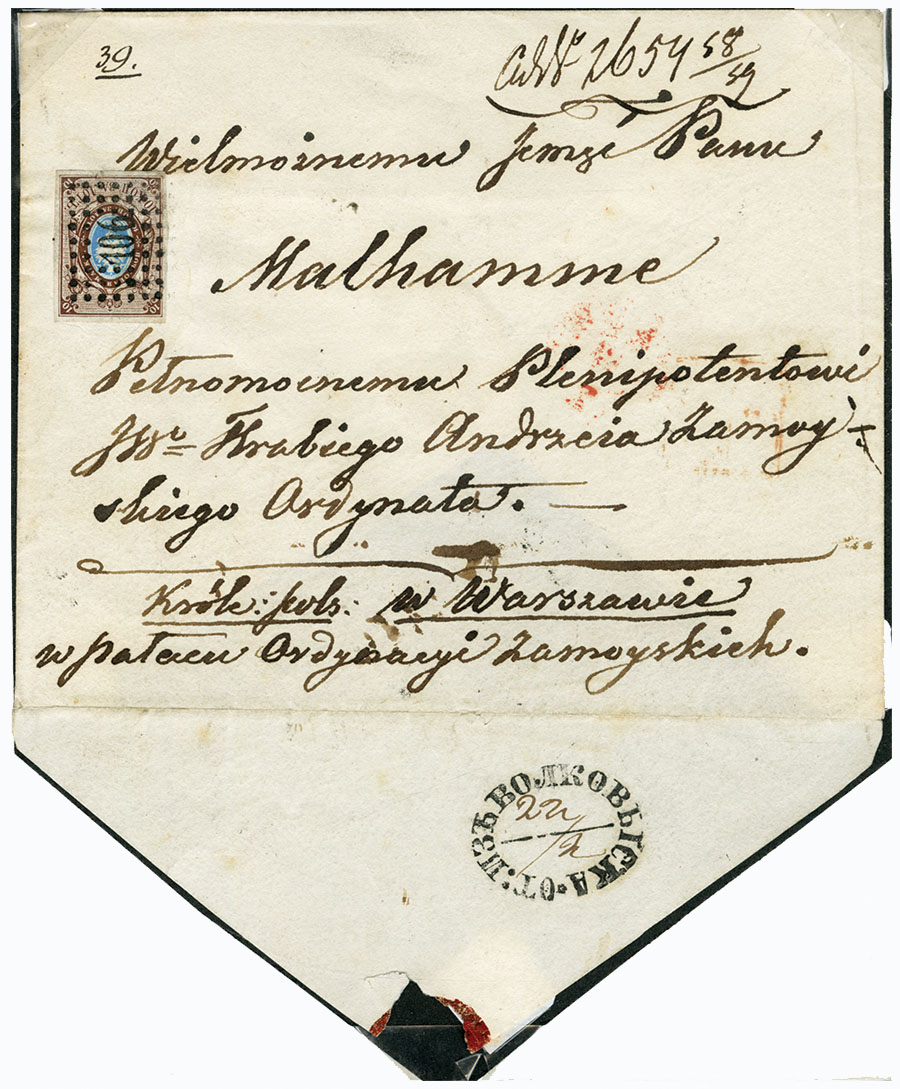 39.
AdNo 2654 58/59
Wielmożnemu Jmzć Panu
106
Malhamme
Pełnomocnemu Plenipotentowi
JWo Hrabiego Andrzeia Zamoy-
skiego Ordynata. —
Król: pols: w Warszawie
w pałacu Ordynacyi Zamoyskich.
ОТ: ИЗЪ ВОЛКОВЫСКА
22/2